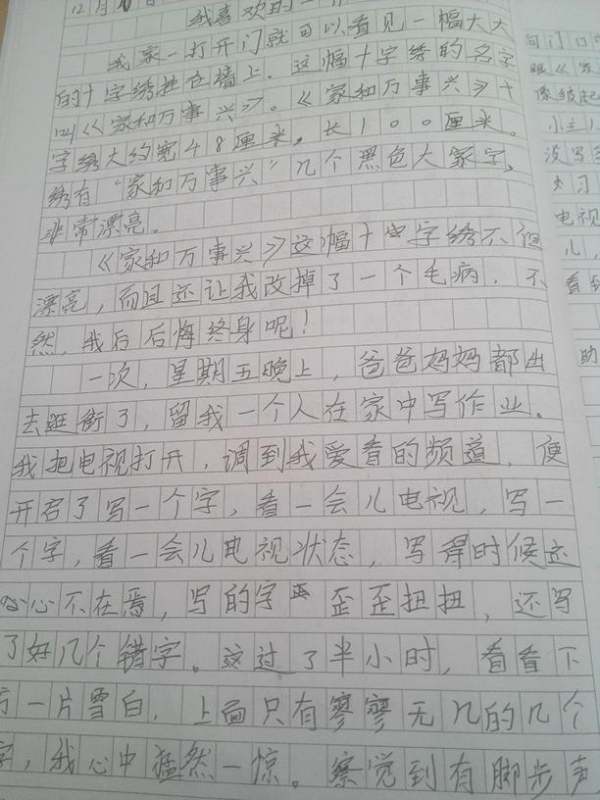 12月
我喜欢的一
我家一打开门就可以看见一幅大大
的十字绣挂在墙上。这幅十字绣的名字
叫《家和万事兴》。《家和万事兴》十
字绣大约宽48厘米,长100厘米。
绣有“家和万事兴”几个黑色大家字,
非常漂亮。
《家和万事兴》这幅十字绣不但
漂亮,而且还让我改掉了一个毛病,不
然,我后后悔终身呢!
一次,星期五晚上,爸爸妈妈都出
去逛街了,留我一个人在家中写作业。
我把电视打开,调到我爱看的频道,便
开启了写一个字,看一会儿电视,写一
个字,看一会儿电视状态,写得时候还
心心不在焉,写的字歪歪扭扭,还写
了好几个错字。这过了半小时,看看下
方一片雪白,上面只有寥寥无几的几个
字,我心中猛然一惊。察觉到有脚步声
小主人
没写
电视
儿,
看
助